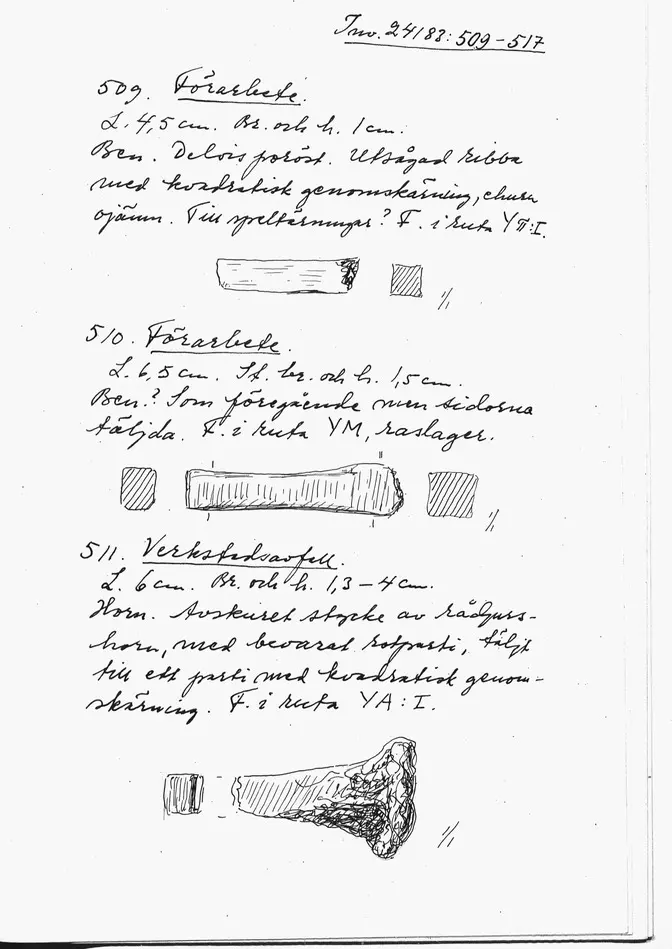 Inv. 24183: 509-517
509. Förarbete.
L. 4,5 cm. Br. och h. 1 cm.
Ben. Delvis poröst. Utsågad ribba
med kvadratisk genomskärning, ehuru
ojämn. Till speltärningar? F. i ruta YΠ:I.
1/1
510. Förarbete.
L. 6,5 cm. St. br. och h. 1,5 cm.
Ben? Som föregående men sidorna
täljda. F. i ruta YM, raslager.
1/1
511. Verkstadsavfall.
L. 6 cm. Br. och h. 1,3-4 cm.
Horn. Avskuret stycke av rådjurs-
horn, med bevarat rotparti, täljt
till ett parti med kvadratisk genom-
skärning. F. i ruta YA:I.
1/1